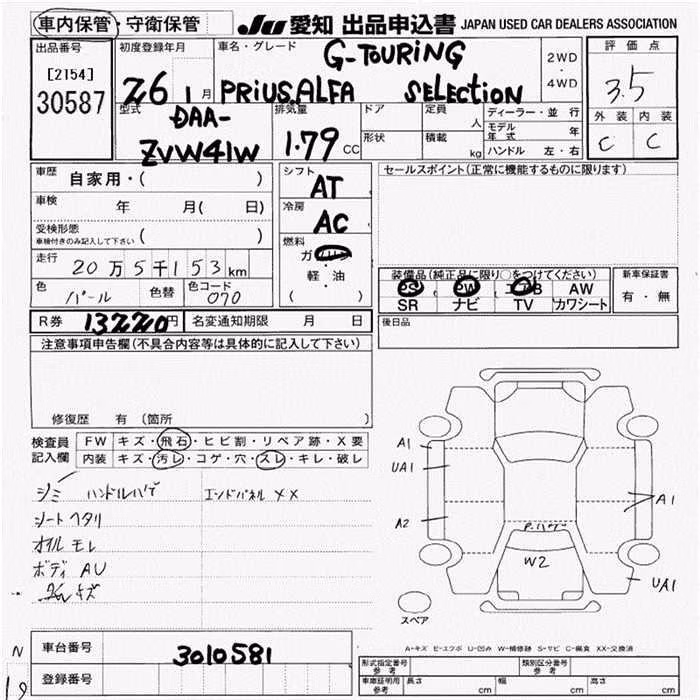 車内保管・守衛保管 JU 愛知 出品申込書 JAPAN USED CAR DEALERS ASSOCIATION
出品番号 初度登録年月 車名・グレード 評価点
G-TOURING 2WD
・
[2154] 4WD
30587 26 1月 PRIUS ALFA SELECTION 3.5
型式 排気量 ドア 定員 人 ディーラー・並行 外装 内装
DAA- モデル年式 年
ZVW41W 1.79 CC 形状 積載 kg ハンドル 左・右 C C
車歴 自家用・( ) シフト AT セールスポイント(正常に機能するものに限ります)
車検 年 月( 日) 冷房 AC
受検形態
車検付きのみ記入して下さい ( ) 燃料 ガソリン
走行 20万5千153km ・
軽・油 装備品(純正品に限り○をつけてください) 新車保証書
色 パール 色替 色コード 070 ( ) PS PW エアB AW 有・無
SR ナビ TV カワシート
R券 13220円 名変通知期限 月 日 後日品
注意事項申告欄(不具合内容等は具体的に記入して下さい)
修復歴 有 (箇所 )
検査員 FW キズ・飛石・ヒビ割・リペア跡・X要
記入欄 内装 キズ・汚レ・コゲ・穴・スレ・キレ・破レ
シミ ハンドルハゲ エンドパネル XX
シートヘタリ
オイルモレ
ボディ AU
キズ
A1
UA1
A2
A1
P.ハゲ
W2
UA1
スペア
A-キズ E-エクボ U-凹み W-補修跡 S-サビ C-腐食 XX-交換済
N 車台番号 3010581 形式指定番号 参考 類別区分番号 参考
19 登録番号 車庫証明用 参考 長さ cm 幅 cm 高さ cm